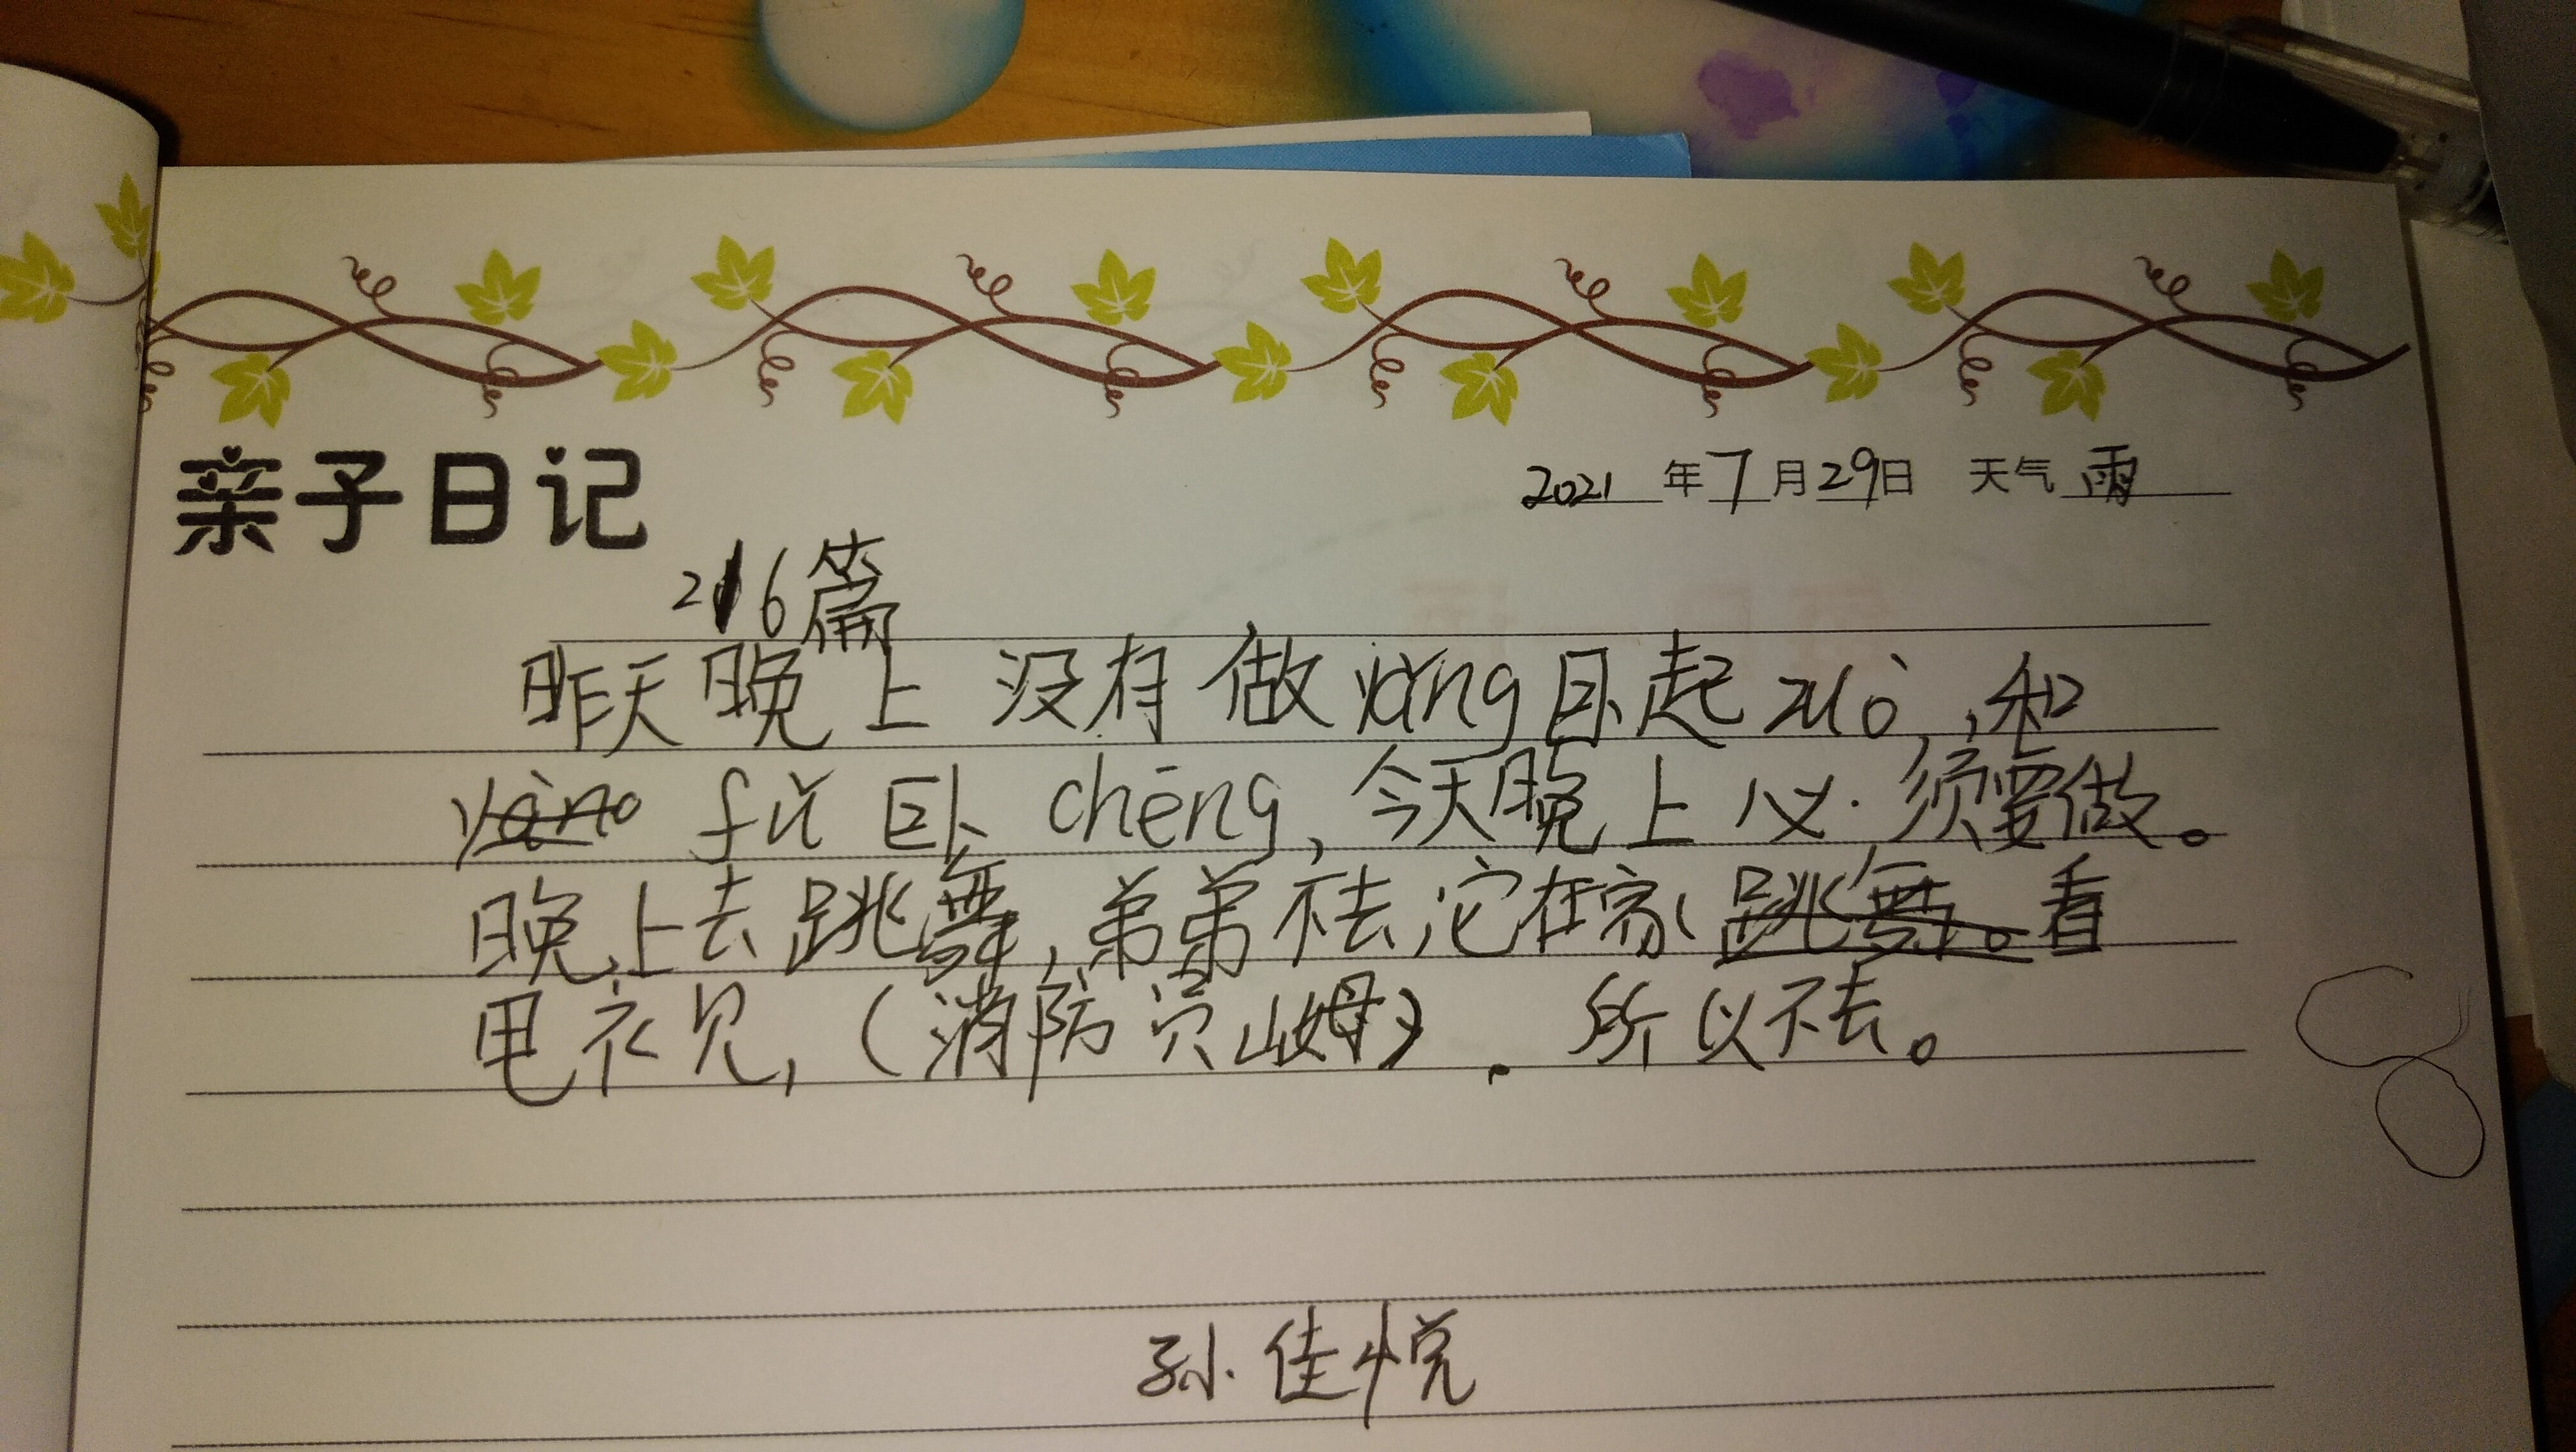 亲子日记
2021年7月29日 天气 雨
216篇
昨天晚上没有做yǎng卧起zuò,和
fǔ卧chēng,今天晚上必须要做。
晚上去跳舞,弟弟不去,它在家跳舞。看
电衣见,(消防员山姆).所以不去。
孙佳悦